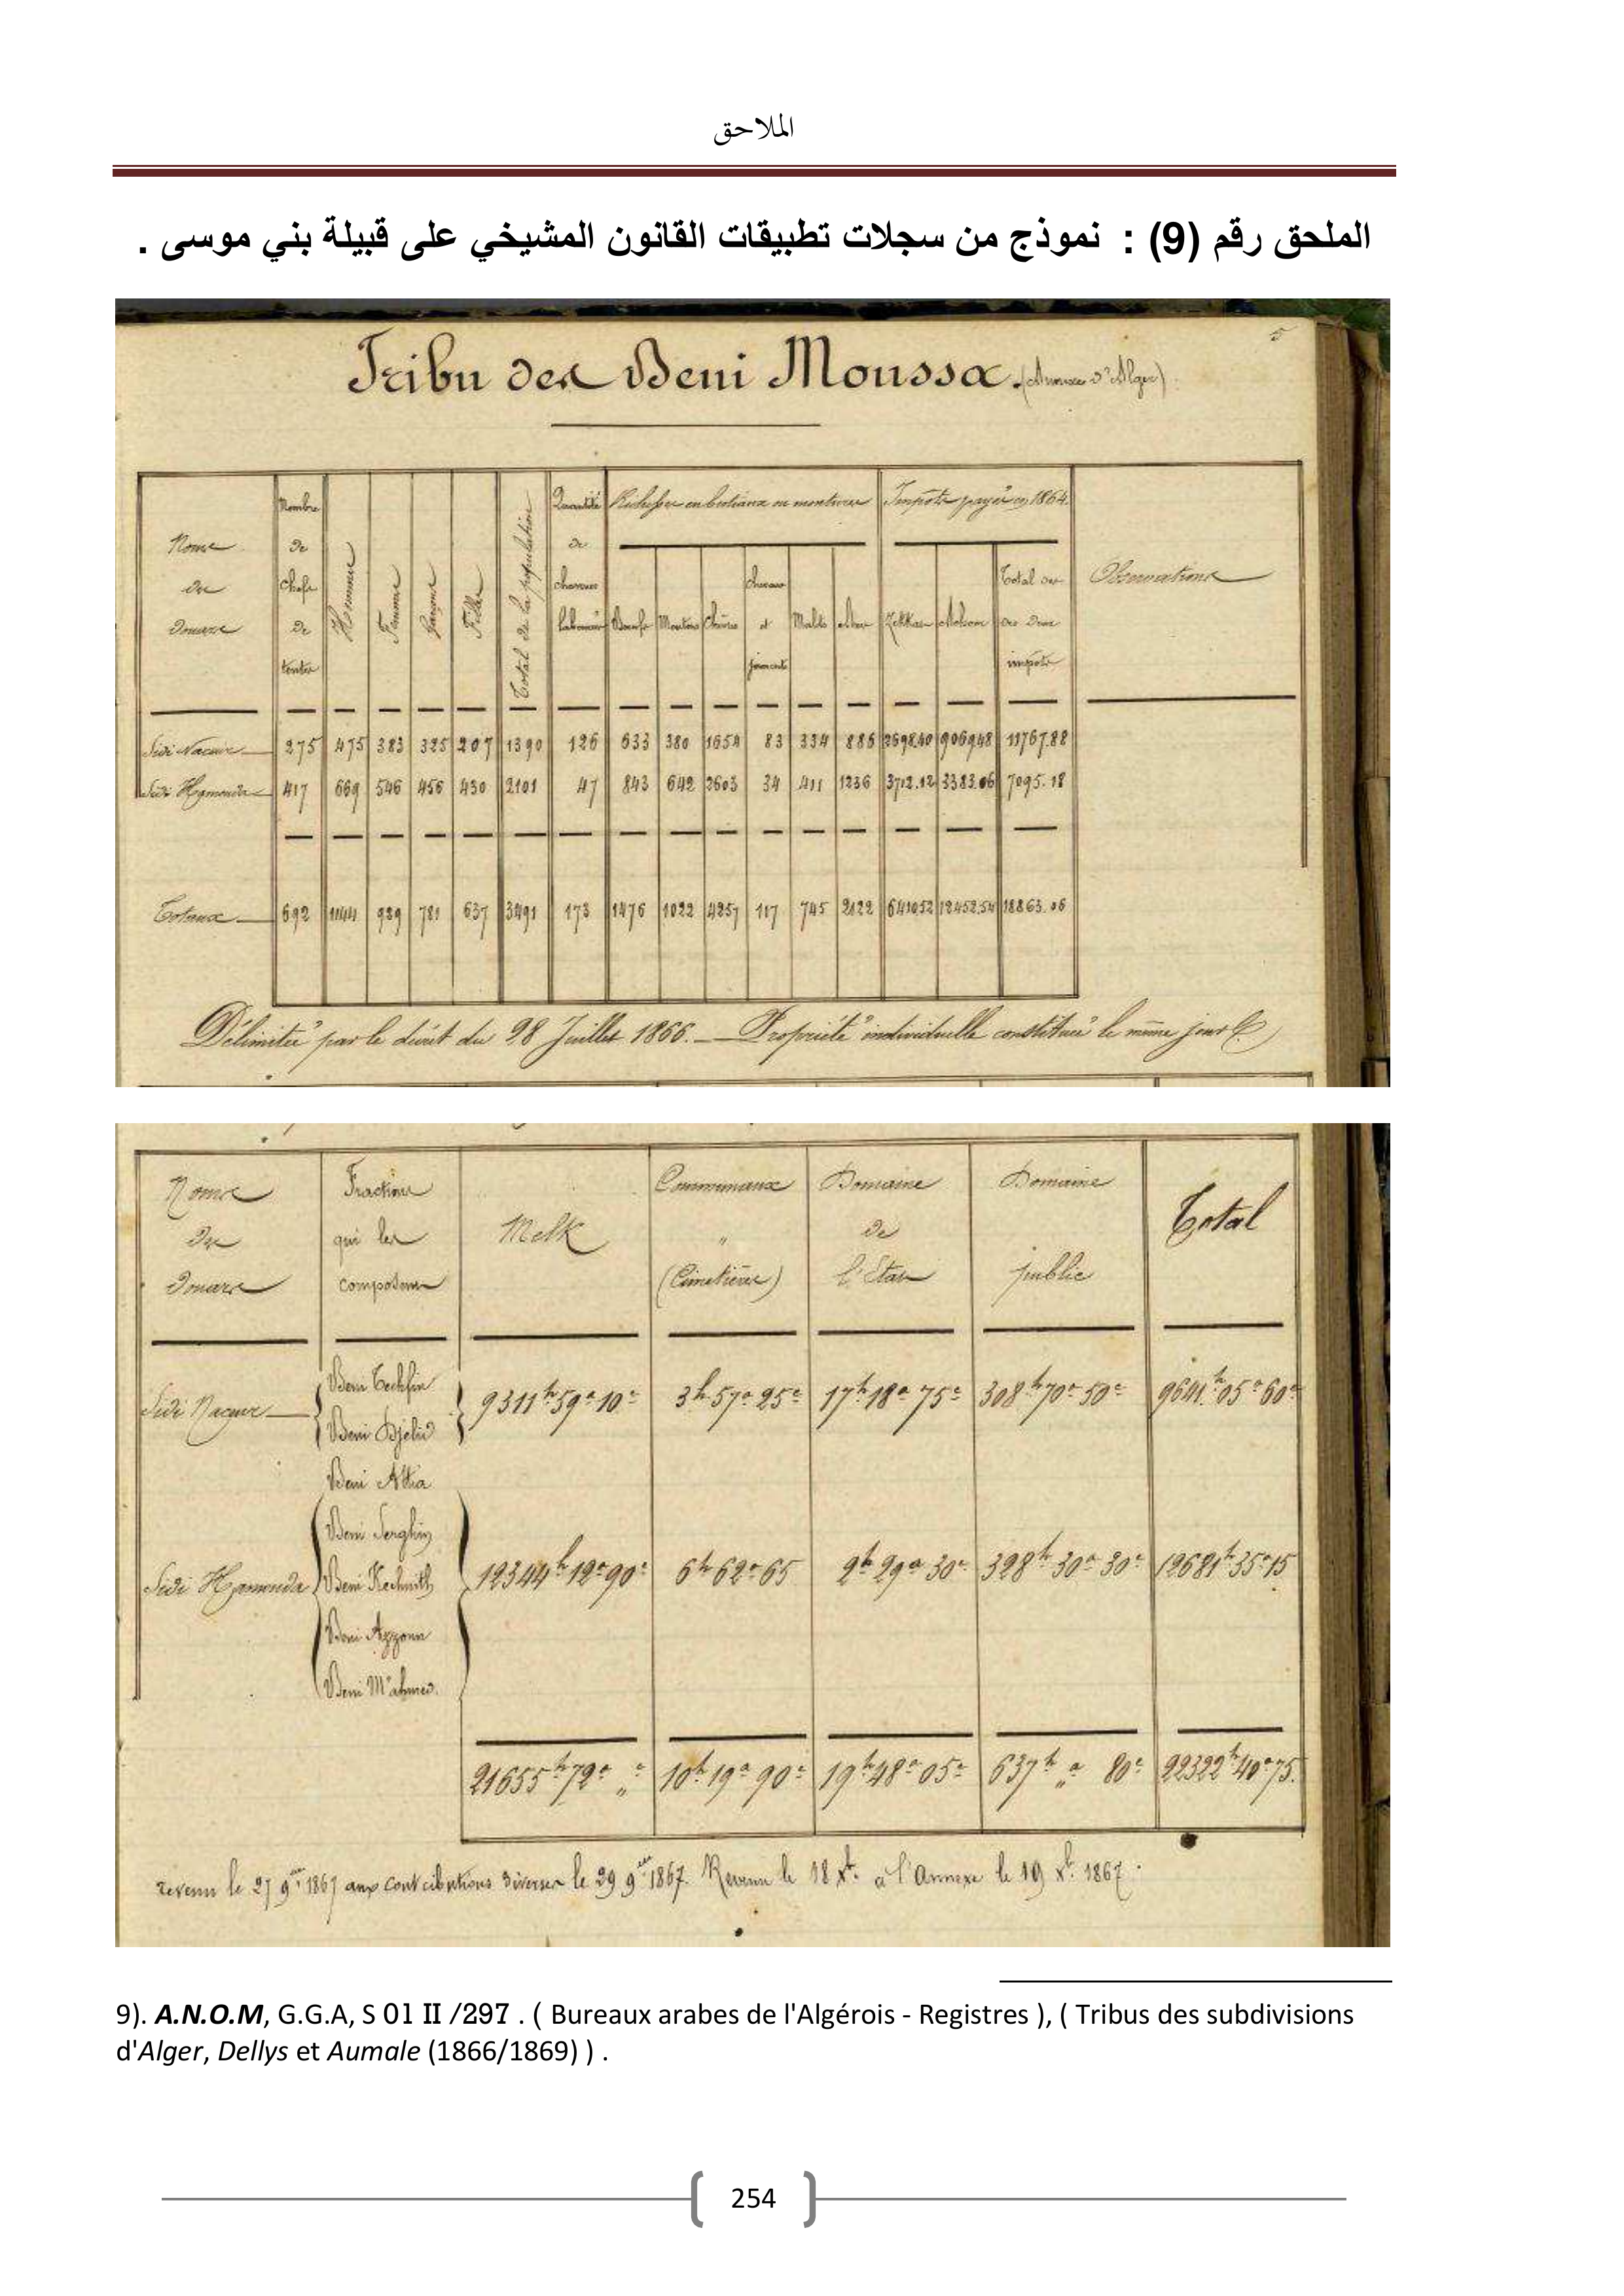 الملاحق
الملحق رقم (9) : نموذج من سجلات تطبيقات القانون المشيخي على قبيلة بني موسى .
5
Tribu des Beni Moussa. (Annexe d'Alger)
Noms des Douars | Nombre de Chefs de tentes | Hommes | Femmes | Garçons | Filles | Total de la population | Quantité de charrues labourées | Richesses en bestiaux ou montures | Impôts payés en 1864. | Observations
Boeufs | Moutons | Chèvres | chevaux et juments | Mulets | Anes | Zekkat | Achour | Total des des deux impôts
Sidi Naceur | 275 | 475 | 383 | 325 | 207 | 1390 | 126 | 633 | 380 | 1654 | 83 | 334 | 886 | 2698.40 | 9069.48 | 11767.88
Sidi Hamouda | 417 | 669 | 546 | 456 | 430 | 2101 | 47 | 843 | 642 | 2603 | 34 | 411 | 1236 | 3712.12 | 3383.06 | 7095.18
Totaux | 692 | 1144 | 929 | 781 | 637 | 3491 | 173 | 1476 | 1022 | 4257 | 117 | 745 | 2122 | 6410 52 | 12452.54 | 18863.06
Délimitée par le décret du 28 Juillet 1866. — Propriété individuelle constituée le même jour
Noms des Douars | Fractions qui les composent | Melk | Communaux " (Cimetières) | Domaine de l'Etat | Domaine public | Total
Beni Techfin
Sidi Naceur | 9311h 59a 10c | 3h 57a 25c | 17h 18a 75c | 308h 70a 50c | 9641h 05a 60c
Beni Djelid
Beni Attia
Beni Serghin
Sidi Hamouda | Beni Kechmith | 12344h 12a 90c | 6h 62a 65 | 2h 29a 30c | 328h 30a 30c | 12681h 35a 15
Beni Azzoun
Beni M'ahmed.
21655h 72a " c | 10h 19a 90c | 19h 48a 05c | 637h " a 80c | 22322h 40a 75.
revenu le 27 9bre 1867 aux contributions diverses le 29 9bre 1867. Revenu le 18 Xbre à l'Annexe le 19 Xbre 1867.
9). A.N.O.M, G.G.A, S 01 II /297 . ( Bureaux arabes de l'Algérois - Registres ), ( Tribus des subdivisions
d'Alger, Dellys et Aumale (1866/1869) ) .
254